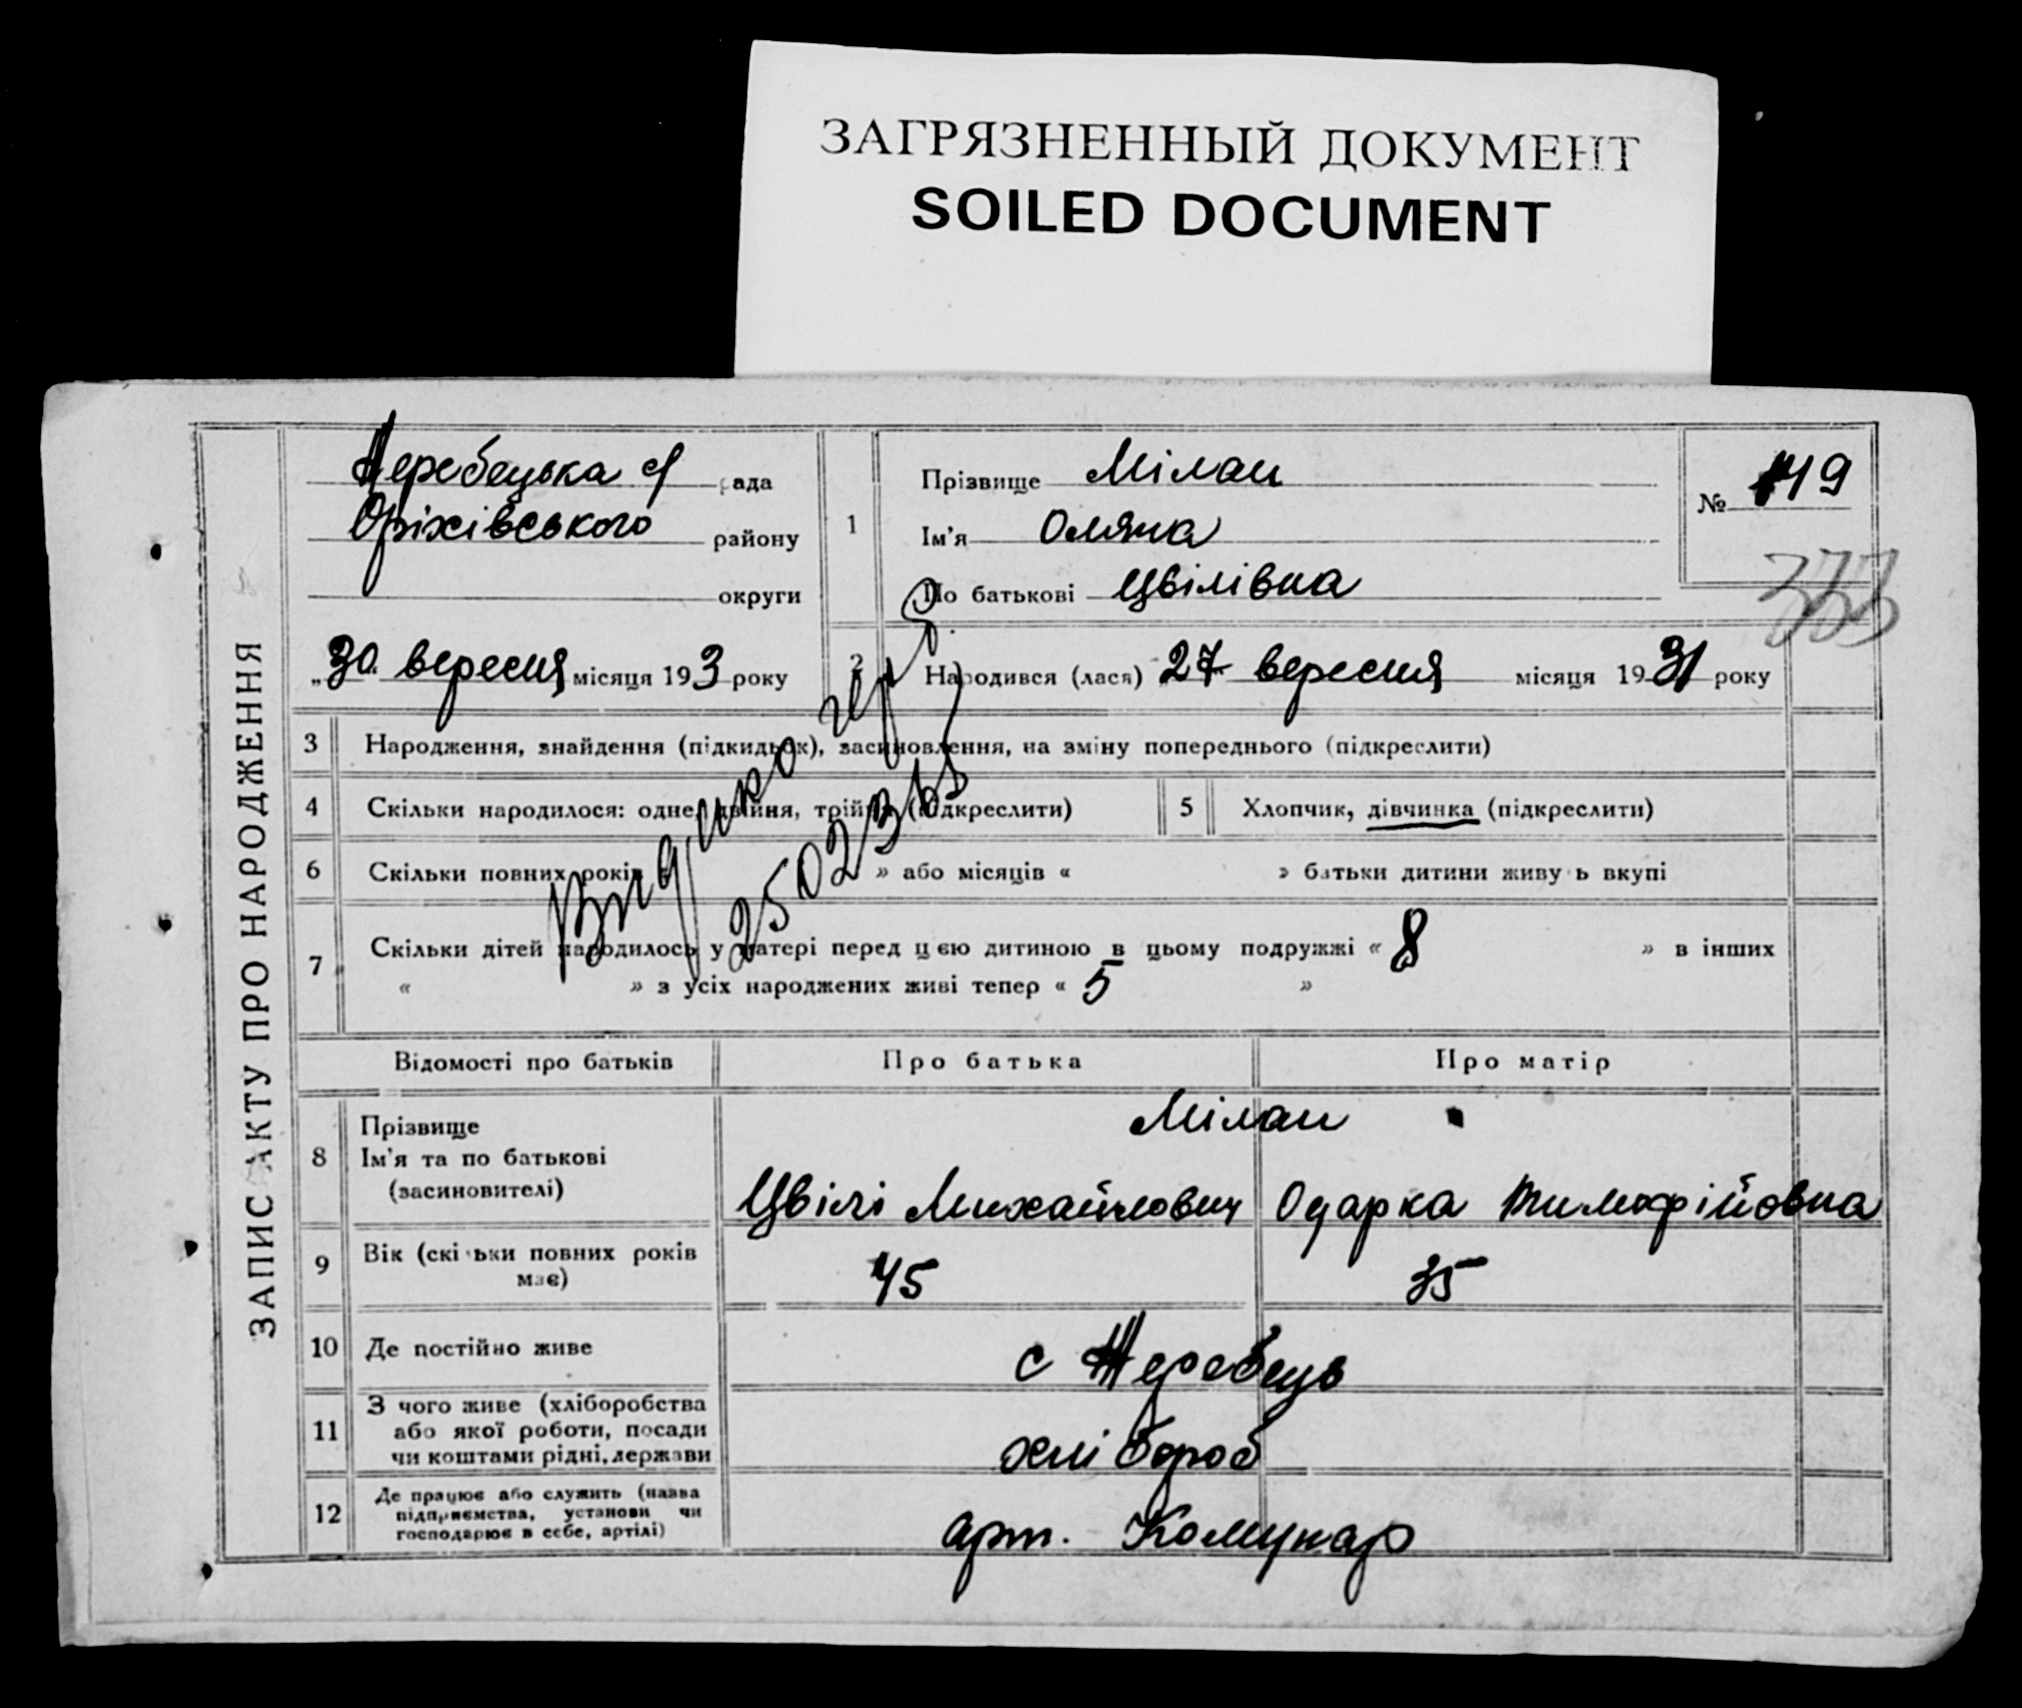 ЗАГРЯЗНЕННЫЙ ДОКУМЕНТ
SOILED DOCUMENT
ЗАПИС АКТУ ПРО НАРОДЖЕННЯ
Жеребецька с/рада
Оріхівського району
округи
„30 вересня місяця 193 року
1
Прізвище Мілан
Ім'я Оляна
По батькові Цвілівна
№ 149
333
2 Народився (лася) 27 вересня місяця 1931 року
3 Народження, знайдення (підкидьок), засиновлення, на зміну попереднього (підкреслити)
4 Скільки народилося: одне, двійня, трійня (підкреслити)
5 Хлопчик, дівчинка (підкреслити)
6 Скільки повних років » або місяців « » батьки дитини живуть вкупі
7 Скільки дітей народилось у матері перед цією дитиною в цьому подружжі « 8 » в інших
« » з усіх народжених живі тепер « 5 »
Відомості про батьків Про батька Про матір
8 Прізвище Мілан
Ім'я та по батькові
(засиновителі) Цвілі Михайлович Одарка Тимофійовна
9 Вік (скільки повних років
має) 45 35
10 Де постійно живе с Жеребець
11 З чого живе (хліборобства
або якої роботи, посади
чи коштами рідні, держави хлібороб
12 Де працює або служить (назва
підприємства, установи чи
господарює в себе, артілі) арт. Комунар